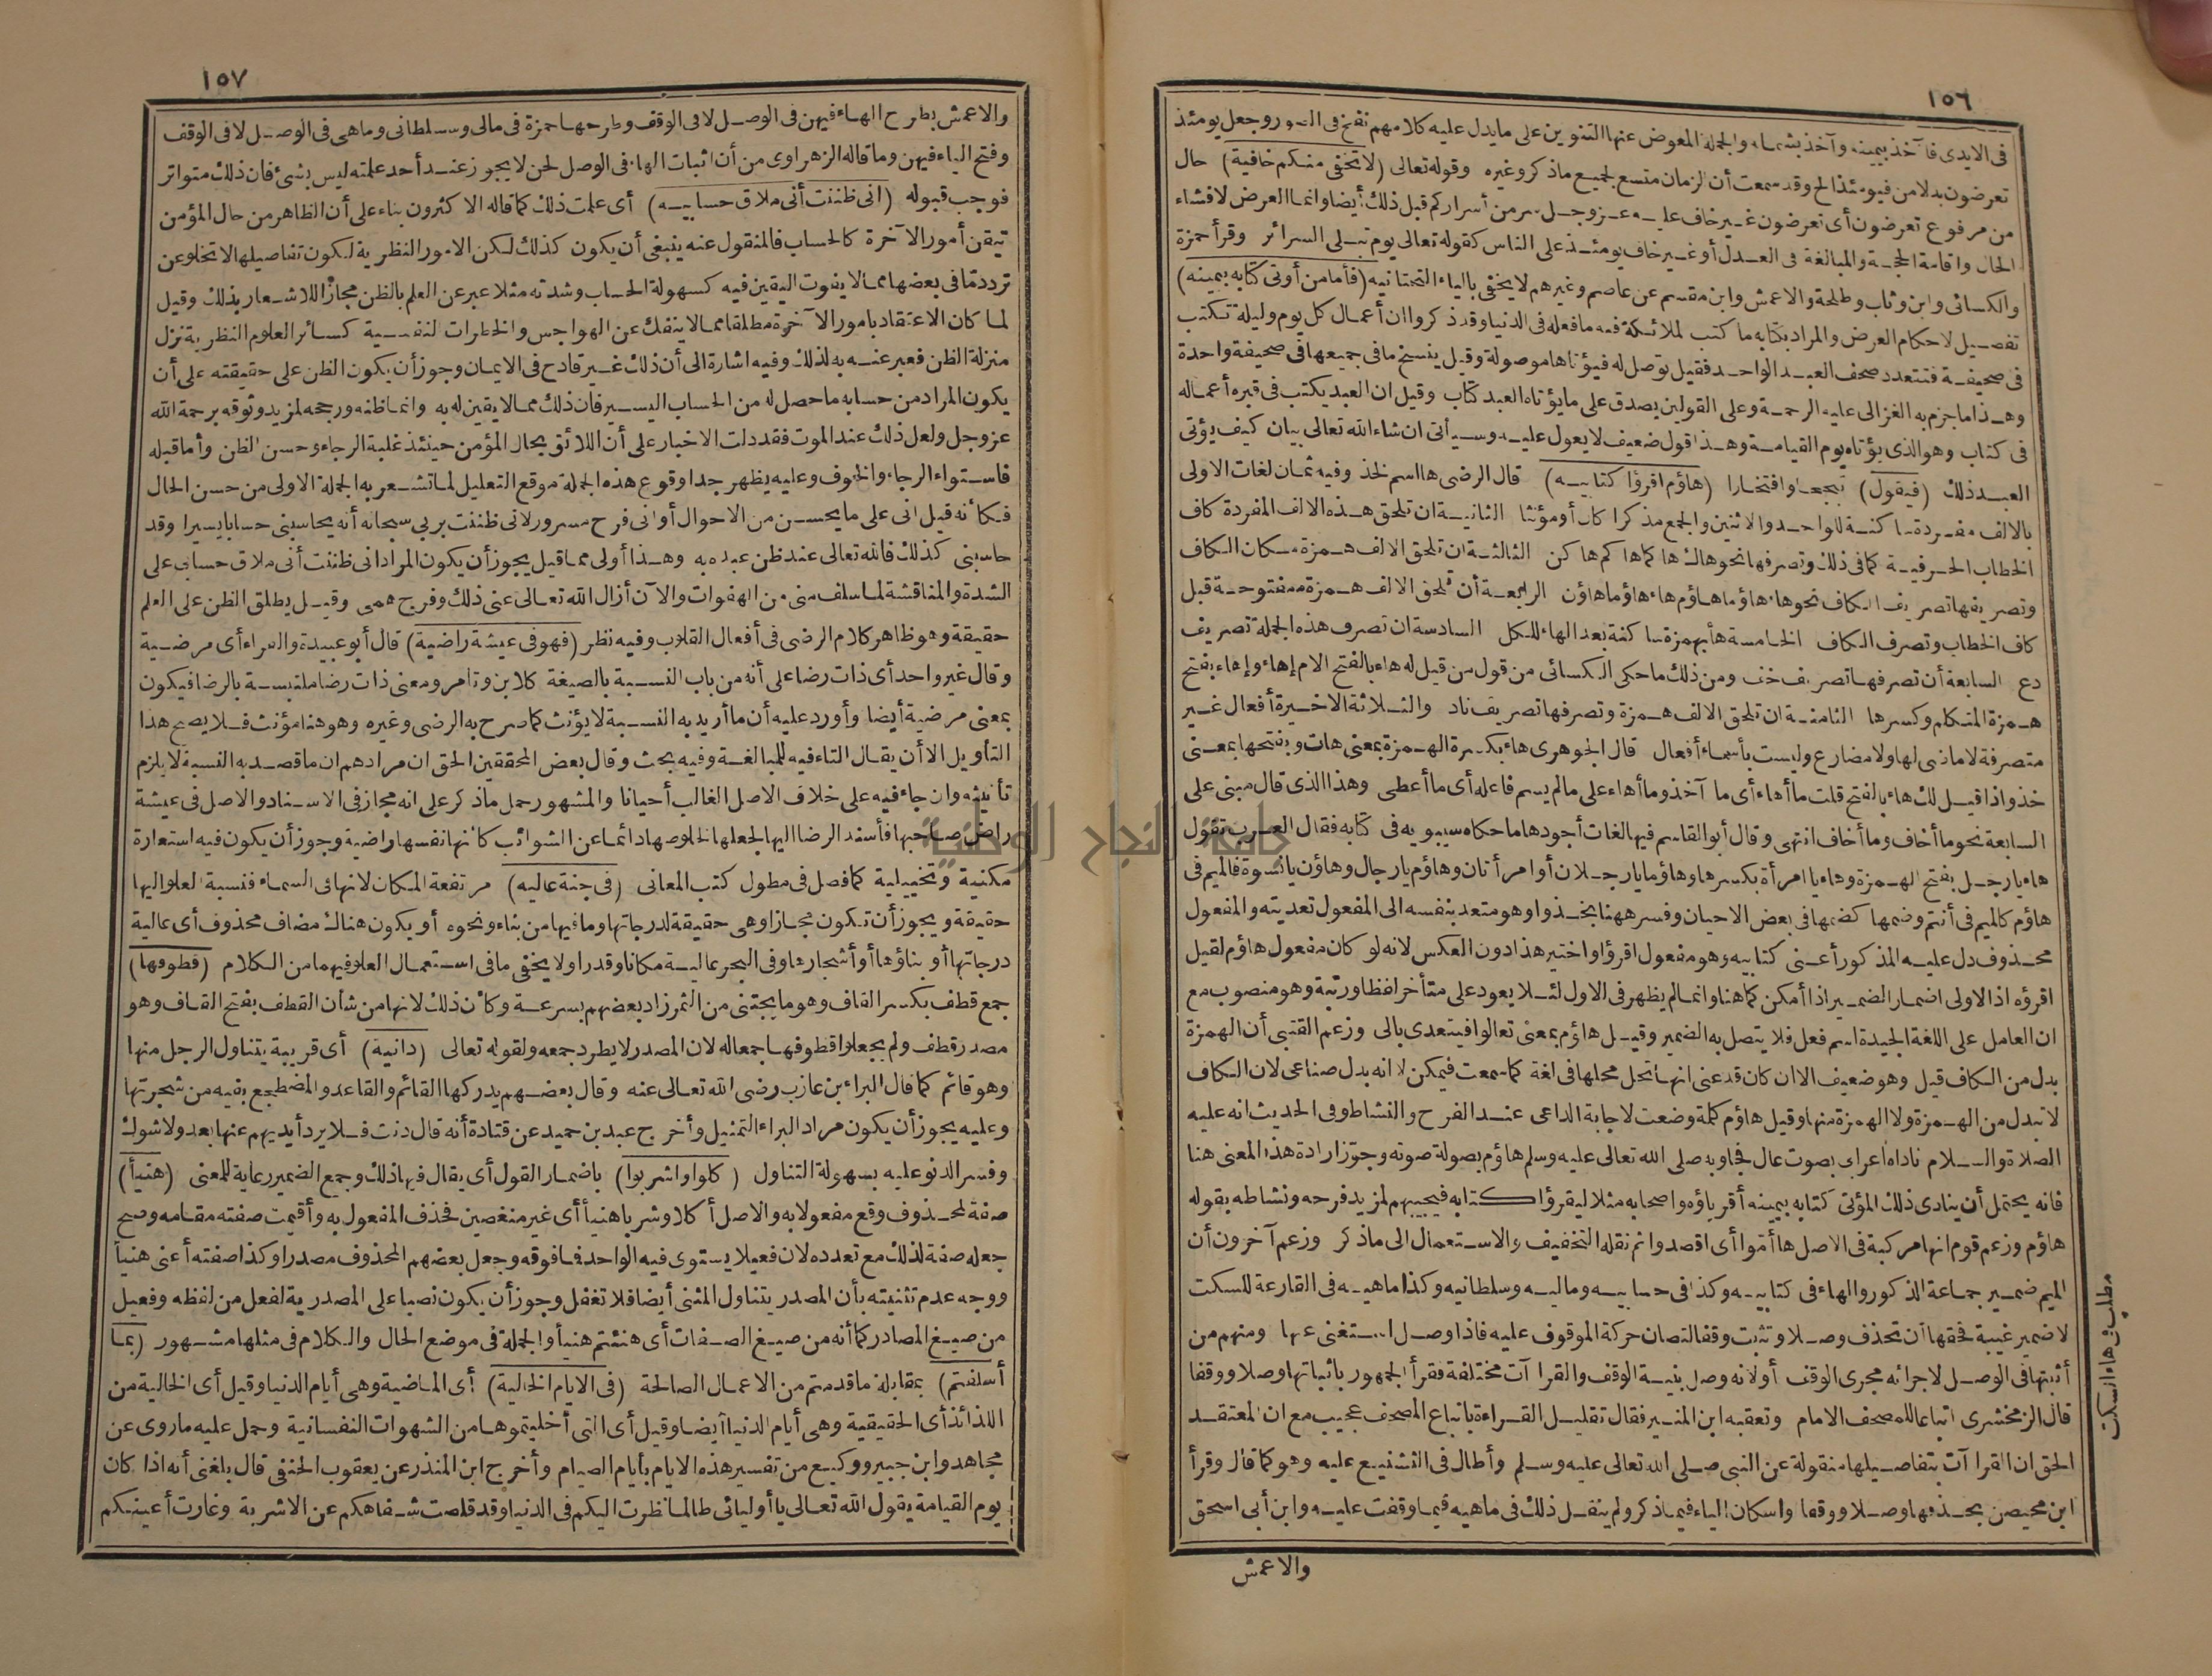 ١٥٦
فى الايدى فآخذ بيمينه وآخذ بشماله والجملة المعوض عنها التنوين على ما يدل عليه كلامهم نفخ فى الصور وجعل يومئذ
تعرضون بدلا من فيومئذ الخ وقد سمعت أن الزمان متسع لجميع ما ذكر وغيره وقوله تعالى (لا تخفى منكم خافية) حال
من مرفوع تعرضون أى تعرضون غير خاف عليه عز وجل سر من أسراركم قبل ذلك أيضا وانما العرض لافشاء
الحال واقامة الحجة والمبالغة فى العدل أو غير خاف يومئذ على الناس كقوله تعالى يوم تبلى السرائر وقرأ حمزة
والكسائى وابن وثاب وطلحة والاعمش وابن مقسم عن عاصم وغيرهم لا يخفى بالياء التحتانية (فأما من أوتى كتابه بيمينه)
تفصيل لاحكام العرض والمراد بكتابه ما كتب الملائكة فيه ما فعله فى الدنيا وقد ذكروا ان أعمال كل يوم وليلة تكتب
فى صحيفة فتتعدد صحف العبد الواحد فقيل توصل له فيؤتاها موصولة وقيل ينسخ ما فى جميعها فى صحيفة واحدة
وهذا ما جزم به الغزالى عليه الرحمة وعلى القولين يصدق على ما يؤتاه العبد كتاب وقيل ان العبد يكتب فى قبره أعماله
فى كتاب وهو الذى يؤتاه يوم القيامة وهذا قول ضعيف لا يعول عليه وسيأتى ان شاء الله تعالى بيان كيف يؤتى
العبد ذلك (فيقول) تبجحا وافتخارا (هاؤم اقرؤا كتابيه) قال الرضى ها اسم لخذ وفيه ثمان لغات الاولى
بالالف مفردة ساكنة للواحد والاثنين والجمع مذكرا كان أو مؤنثا الثانية ان تلحق هذه الالف المفردة كاف
الخطاب الحرفية كما فى ذلك وتصرفها نحو هاك ها كما ها كم ها كن الثالثة ان تلحق الالف همزة مكان الكاف
وتصريفها تصريف الكاف نحو هاء هاؤما هاؤم هاء هاؤما هاؤن الرابعة أن تلحق الالف همزة مفتوحة قبل
كاف الخطاب وتصرف الكاف الخامسة هأ بهمزة ساكنة بعد الهاء للكل السادسة ان تصرف هذه الجملة تصريف
دع السابعة أن تصرفها تصريف خف ومن ذلك ما حكى الكسائى من قول من قيل له هاء بالفتح الام إهاء وإهاء بفتح
همزة المتكلم وكسرها الثامنة ان تلحق الالف همزة وتصرفها تصريف ناد والثلاثة الاخيرة أفعال غير
متصرفة لا ماضى لها ولا مضارع وليست بأسماء أفعال قال الجوهرى هاء بكسرة الهمزة بمعنى هات وبفتحها بمعنى
خذ واذا قيل لك هاء بالفتح قلت ما أهاء أى ما آخذ وما أهاء على ما لم يسم فاعله أى ما أعطى وهذا الذى قال مبنى على
السابعة نحو ما أخاف وما أخاف انتهى وقال أبو القاسم فيها لغات أجودها ما حكاه سيبويه فى كتابه فقال العرب تقول
هاء يا رجل بفتح الهمزة وهاء يا امرأة بكسرها وهاؤما يا رجلان أو امرأتان وهاؤم يا رجال وهاؤن يا نسوة فالميم فى
هاؤم كالميم فى أنتم وضمها كضمها فى بعض الاحيان وفسر ههنا بخذوا وهو متعد بنفسه الى المفعول تعديته والمفعول
محذوف دل عليه المذكور أعنى كتابيه وهو مفعول اقرؤا واختير هذا دون العكس لانه لو كان مفعول هاؤم لقيل
اقرؤه اذ الاولى اضمار الضمير اذا أمكن كما هنا وانما لم يظهر فى الاول لئلا يعود على متأخر لفظا ورتبة وهو منصوب مع
ان العامل على اللغة الجيدة اسم فعل فلا يتصل به الضمير وقيل هاؤم بمعنى تعالوا فيتعدى بالى وزعم القتبى أن الهمزة
بدل من الكاف قيل وهو ضعيف الا ان كان قد عنى انها تحل محلها فى لغة كما سمعت فيمكن لا انه بدل صناعى لان الكاف
لا تبدل من الهمزة ولا الهمزة منها وقيل هاؤم كلمة وضعت لاجابة الداعى عند الفرح والنشاط وفى الحديث انه عليه
الصلاة والسلام ناداه أعرابى بصوت عال فجاوبه صلى الله تعالى عليه وسلم هاؤم بصولة صوته وجوز ارادة هذا المعنى هنا
فانه يحتمل أن ينادى ذلك المؤتى كتابه بيمينه أقرباؤه وأصحابه مثلا ليقرؤا كتابه فيجيبهم لمزيد فرحه ونشاطه بقوله
هاؤم وزعم قوم انها مركبة فى الاصل ها أموا أى اقصدوا ثم نقله التخفيف والاستعمال الى ما ذكر وزعم آخرون أن
الميم ضمير جماعة الذكور والهاء فى كتابيه وكذا فى حسابيه وماليه وسلطانيه وكذا ماهيه فى القارعة للسكت
لا ضمير غيبة فحقها أن تحذف وصلا وتثبت وقفا لتصان حركة الموقوف عليه فاذا وصل استغنى عنها ومنهم من
أثبتها فى الوصل لاجرائه مجرى الوقف أو لانه وصل بنية الوقف والقراآت مختلفة فقرأ الجمهور باثباتها وصلا ووقفا
قال الزمخشرى اتباعا للمصحف الامام وتعقبه ابن المنير فقال تقليل القراءة باتباع المصحف عجيب مع ان المعتقد
الحق ان القراآت بتفاصيلها منقولة عن النبى صلى الله تعالى عليه وسلم وأطال فى التشنيع عليه وهو كما قال وقرأ
ابن محيصن بحذفها وصلا ووقفا واسكان الياء فيما ذكر ولم ينقل ذلك فى ماهيه فيما وقفت عليه وابن أبى اسحق
والاعمش
مطلب فى هاء السكت
١٥٧
والاعمش بطرح الهاء فيهن فى الوصل لا فى الوقف وطرحها حمزة فى مالى وسلطانى وماهى فى الوصل لا فى الوقف
وفتح الياء فيهن وما قاله الزهراوى من أن اثبات الهاء فى الوصل لحن لا يجوز عند أحد علمته ليس بشئ فان ذلك متواتر
فوجب قبوله (انى ظننت أنى ملاق حسابيه) أى علمت ذلك كما قاله الاكثرون بناء على أن الظاهر من حال المؤمن
تيقن أمور الآخرة كالحساب فالمنقول عنه ينبغى أن يكون كذلك لكن الامور النظرية لكون تفاصيلها لا تخلو عن
تردد ما فى بعضها مما لا يفوت اليقين فيه كسهولة الحساب وشدته مثلا عبر عن العلم بالظن مجازا للاشعار بذلك وقيل
لما كان الاعتقاد بامور الآخرة مطلقا مما لا ينفك عن الهواجس والخطرات النفسية كسائر العلوم النظرية نزل
منزلة الظن فعبر عنه به لذلك وفيه اشارة الى أن ذلك غير قادح فى الايمان وجوز أن يكون الظن على حقيقته على أن
يكون المراد من حسابه ما حصل له من الحساب اليسير فان ذلك مما لا يقين له به وانما ظنه ورجحه لمزيد وثوقه برحمة الله
عز وجل ولعل ذلك عند الموت فقد دلت الاخبار على أن اللائق بحال المؤمن حينئذ غلبة الرجاء وحسن الظن وأما قبله
فاستواء الرجاء والخوف وعليه يظهر جدا وقوع هذه الجملة موقع التعليل لما تشعر به الجملة الاولى من حسن الحال
فكأنه قيل انى على ما يحسن من الاحوال أو انى فرح مسرور لانى ظننت بربى سبحانه أنه يحاسبنى حسابا يسيرا وقد
حاسبنى كذلك فالله تعالى عند ظن عبده به وهذا أولى مما قيل يجوز أن يكون المراد انى ظننت أنى ملاق حسابى على
الشدة والمناقشة لما سلف منى من الهفوات والآن أزال الله تعالى عنى ذلك وفرج همى وقيل يطلق الظن على العلم
حقيقة وهو ظاهر كلام الرضى فى أفعال القلوب وفيه نظر (فهو فى عيشة راضية) قال أبو عبيدة والفراء أى مرضية
وقال غير واحد أى ذات رضا على أنه من باب النسبة بالصيغة كلابن وتامر ومعنى ذات رضا ملتبسة بالرضا فيكون
بمعنى مرضية أيضا وأورد عليه أن ما أريد به النسبة لا يؤنث كما صرح به الرضى وغيره وهو هنا مؤنث فلا يصح هذا
التأويل الا أن يقال التاء فيه للمبالغة وفيه بحث وقال بعض المحققين الحق ان مرادهم ان ما قصد به النسبة لا يلزم
تأنيثه وان جاء فيه على خلاف الاصل الغالب أحيانا والمشهور حمل ما ذكر على انه مجاز فى الاسناد والاصل فى عيشة
راض صاحبها فأسند الرضا اليها لجعلها لخلوصها دائما عن الشوائب كأنها نفسها راضية وجوز أن يكون فيه استعارة
مكنية وتخييلية كما فصل فى مطول كتب المعانى (فى جنة عالية) مرتفعة المكان لانها فى السماء فنسبة العلو اليها
حقيقة ويجوز أن تكون مجازا وهى حقيقة لدرجاتها وما فيها من بناء ونحوه أو يكون هناك مضاف محذوف أى عالية
درجاتها أو بناؤها أو أشجارها وفى البحر عالية مكانا وقدرا ولا يخفى ما فى استعمال العلو فيهما من الكلام (قطوفها)
جمع قطف بكسر القاف وهو ما يجتنى من الثمر زاد بعضهم بسرعة وكان ذلك لانها من شأن القطف بفتح القاف وهو
مصدر قطف ولم يجعلوا قطوفها جمعا له لان المصدر لا يطرد جمعه ولقوله تعالى (دانية) أى قريبة يتناول الرجل منها
وهو قائم كما قال البراء بن عازب رضى الله تعالى عنه وقال بعضهم يدركها القائم والقاعد والمضطجع بفيه من شجرتها
وعليه يجوز أن يكون مراد البراء التمثيل وأخرج عبد بن حميد عن قتادة أنه قال دنت فلا يرد أيديهم عنها بعد ولا شوك
وفسر الدنو عليه بسهولة التناول (كلوا واشربوا) باضمار القول أى يقال فيها ذلك وجمع الضمير رعاية للمعنى (هنيأ)
صفة لمحذوف وقع مفعولا به والاصل أكلا وشربا هنيأ أى غير منغصين فحذف المفعول به وأقيمت صفته مقامه وصح
جعله صفة لذلك مع تعدده لان فعيلا يستوى فيه الواحد فما فوقه وجعل بعضهم المحذوف مصدرا وكذا صفته أعنى هنيأ
ووجه عدم تثنيته بأن المصدر يتناول المثنى أيضا فلا تغفل وجوز أن يكون نصبا على المصدرية لفعل من لفظه وفعيل
من صيغ المصادر كما أنه من صيغ الصفات أى هنئتم هنيأ والجملة فى موضع الحال والكلام فى مثلها مشهور (بما
أسلفتم) بمقابلة ما قدمتم من الاعمال الصالحة (فى الايام الخالية) أى الماضية وهى أيام الدنيا وقيل أى الخالية من
اللذائذ أى الحقيقية وهى أيام الدنيا أيضا وقيل أى التى أخليتموها من الشهوات النفسانية وحمل عليه ما روى عن
مجاهد وابن جبير ووكيع من تفسير هذه الايام بأيام الصيام وأخرج ابن المنذر عن يعقوب الحنفى قال بلغنى أنه اذا كان
يوم القيامة يقول الله تعالى يا أوليائى طالما نظرت اليكم فى الدنيا وقد قلصت شفاهكم عن الاشربة وغارت أعينكم
جامعة النجاح الوطنية